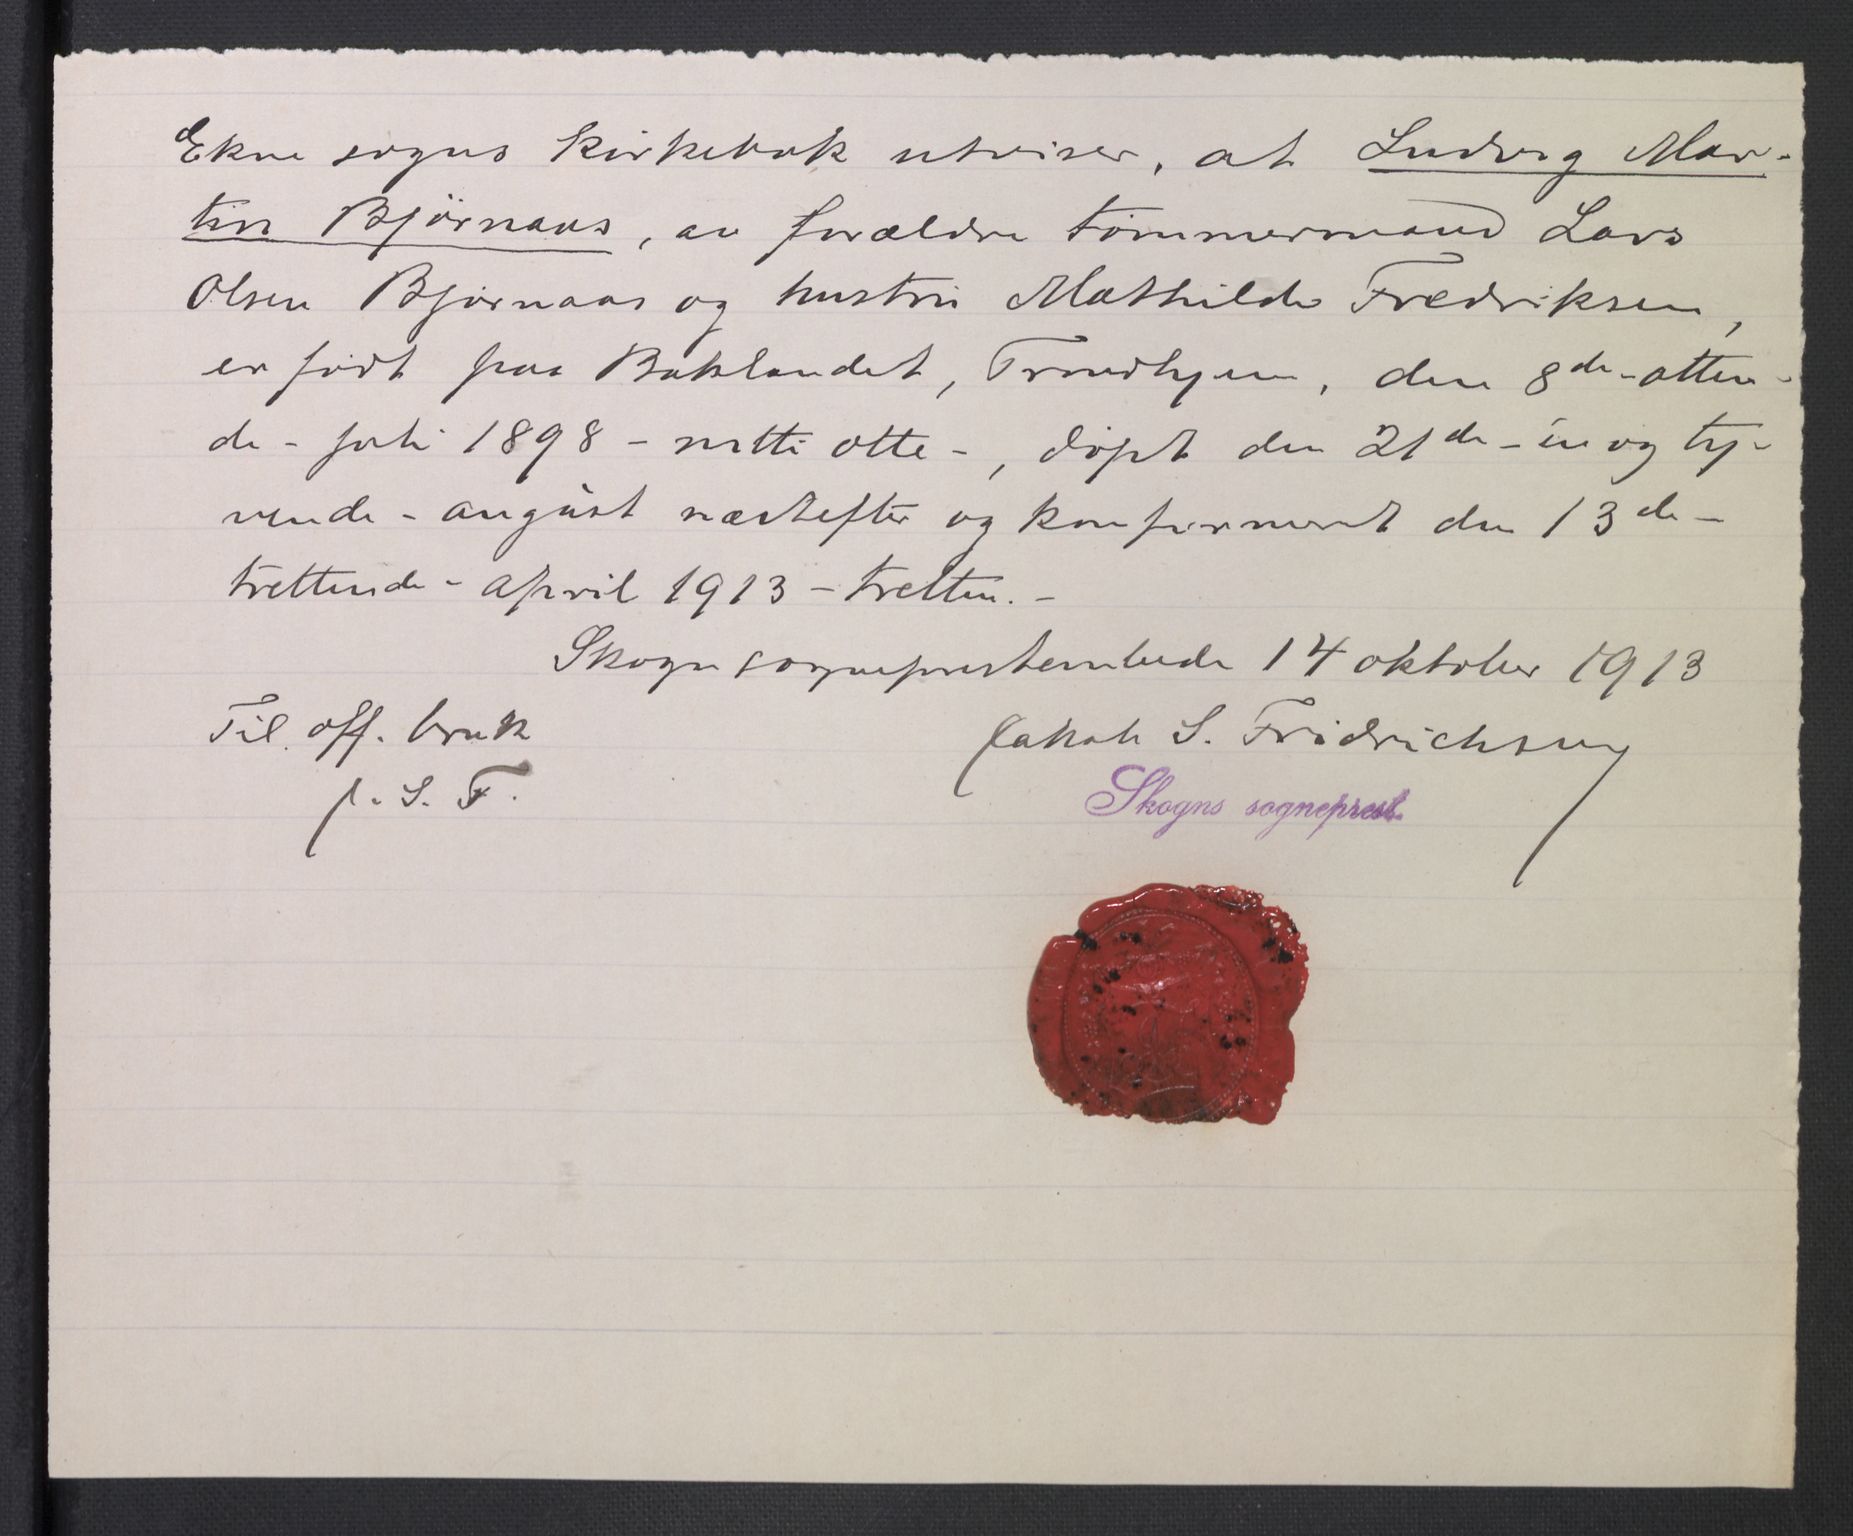 Ekne sogns kirkebok utviser, at Ludvig Mar-
tin Bjørnaas, av forældre tømmermand Lars
Olsen Bjørnaas og hustru Mathilde Fredriksen,
er født paa Baklandet, Trondhjem, den 8de - otten-
de - juli 1898 - nitti otte -, døpt den 21de - en og ty-
vende - august næstefter og konfirmert den 13de -
trettende - april 1913 - tretten. -
Skogn sogneprestembede 14 oktober 1913
Til off. bruk
J. S. F.
Jakob S. Fridrichsen
Skogns sogneprest.